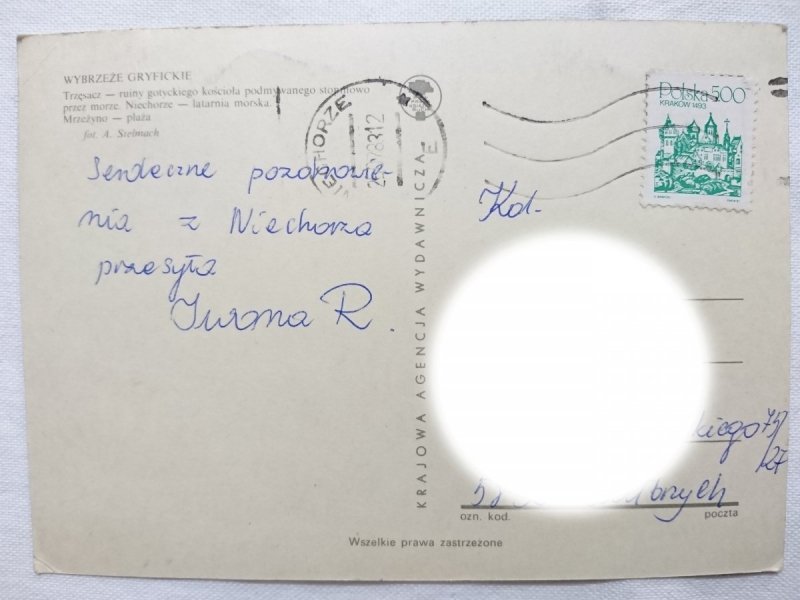 WYBRZEŻE GRYFICKIE
Trzęsacz — ruiny gotyckiego kościoła podmywanego stopniowo
przez morze. Niechorze — latarnia morska.
Mrzeżyno — plaża
fot. A. Stelmach
Serdeczne pozdrowie-
nia z Niechorza
przesyła
Iwona R.
NIECHORZE
83 12
KRAJOWA AGENCJA WYDAWNICZA
Polska 5.00
KRAKÓW 1493
Kol.
kiego 75/
/27
58 brzych
ozn. kod. poczta
Wszelkie prawa zastrzeżone